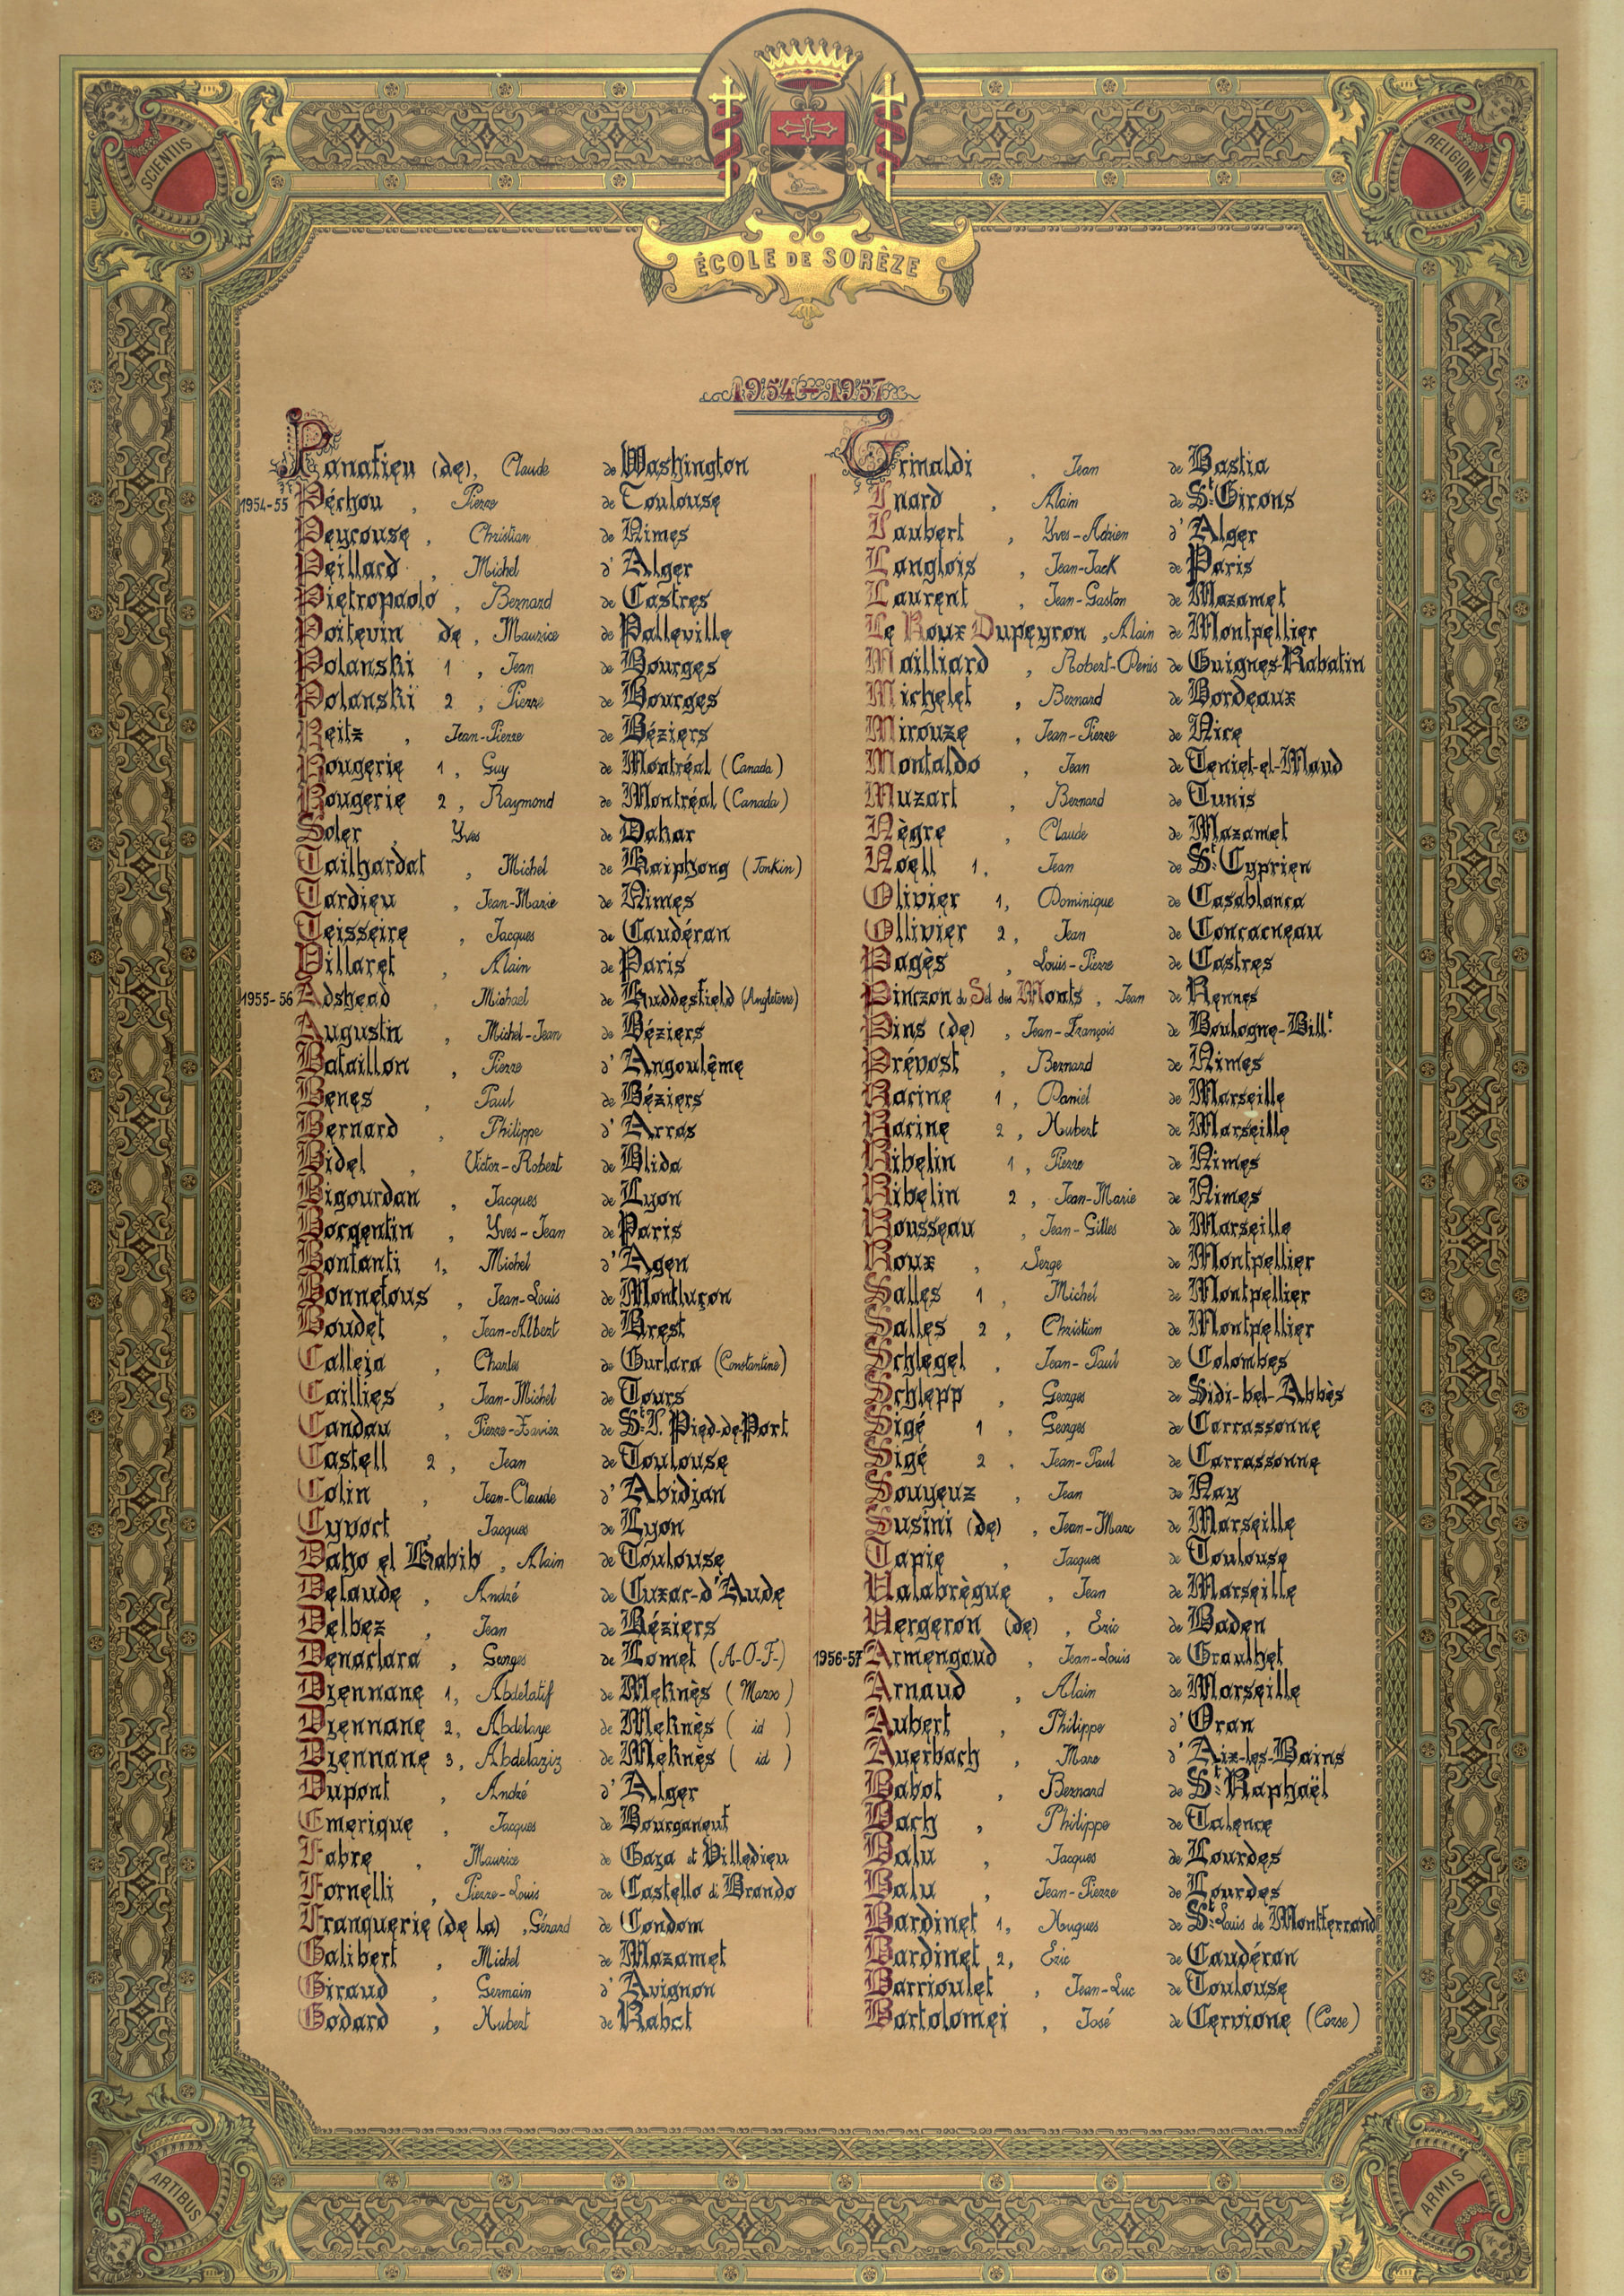 SCIENTIIS
RELIGIONI
ÉCOLE DE SORÈZE
1954-1957
Panafieu (de), Claude de Washington
1954-55 Péchou, Pierre de Toulouse
Peyrouse, Christian de Nimes
Peillard, Michel d'Alger
Pietropaolo, Bernard de Castres
Poitevin de, Maurice de Palleville
Polanski 1, Jean de Bourges
Polanski 2, Pierre de Bourges
Reitz, Jean-Pierre de Béziers
Rougerie 1, Guy de Montréal (Canada)
Rougerie 2, Raymond de Montréal (Canada)
Soler, Yves de Dakar
Tailhardat, Michel de Haiphong (Tonkin)
Tardieu, Jean-Marie de Nimes
Teisseire, Jacques de Caudéran
Villaret, Alain de Paris
1955-56 Adshead, Michael de Huddesfield (Angleterre)
Augustin, Michel-Jean de Béziers
Bataillon, Pierre d'Angoulême
Benes, Paul de Béziers
Bernard, Philippe d'Arras
Bidel, Victor-Robert de Blida
Bigourdan, Jacques de Lyon
Borgentin, Yves-Jean de Paris
Bonfanti 1, Michel d'Agen
Bonnefous, Jean-Louis de Montluçon
Boudet, Jean-Albert de Brest
Calleja, Charles de Gurlara (Constantine)
Caillies, Jean-Michel de Tours
Candau, Pierre-Xavier de St J. Pied-de-Port
Castell 2, Jean de Toulouse
Colin, Jean-Claude d'Abidjan
Cyvoct, Jacques de Lyon
Daho el Habib, Alain de Toulouse
Delaude, André de Cuzac-d'Aude
Delbez, Jean de Béziers
Denaclara, Georges de Lomet (A-O-F-)
Djennane 1, Abdelatif de Meknès (Maroc)
Djennane 2, Abdelaye de Meknès ( id )
Djennane 3, Abdelaziz de Meknès ( id )
Dupont, André d'Alger
Emerique, Jacques de Bourganeuf
Fabre, Maurice de Gaza et Villedieu
Fornelli, Pierre-Louis de Castello di Brando
Franquerie (de la), Gérard de Condom
Galibert, Michel de Mazamet
Giraud, Germain d'Avignon
Godard, Hubert de Rabat
Grimaldi, Jean de Bastia
Inard, Alain de St Girons
Jaubert, Yves-Adrien d'Alger
Langlois, Jean-Jack de Paris
Laurent, Jean-Gaston de Mazamet
Le Roux Dupeyron, Alain de Montpellier
Mailliard, Robert-Denis de Guignes-Rabatin
Michelet, Bernard de Bordeaux
Mirouze, Jean-Pierre de Nice
Montaldo, Jean de Teniet-el-Maud
Muzart, Bernard de Tunis
Nègre, Claude de Mazamet
Noell 1, Jean de St Cyprien
Olivier 1, Dominique de Casablanca
Ollivier 2, Jean de Concarneau
Pagès, Louis-Pierre de Castres
Pinczon du Sel des Monts, Jean de Rennes
Pins (de), Jean-François de Boulogne-Billt
Prévost, Bernard de Nimes
Racine 1, Daniel de Marseille
Racine 2, Hubert de Marseille
Ribelin 1, Pierre de Nimes
Ribelin 2, Jean-Marie de Nimes
Rousseau, Jean-Gilles de Marseille
Roux, Serge de Montpellier
Salles 1, Michel de Montpellier
Salles 2, Christian de Montpellier
Schlegel, Jean-Paul de Colombes
Schlepp, Georges de Sidi-bel-Abbès
Sigé 1, Georges de Carcassonne
Sigé 2, Jean-Paul de Carcassonne
Souyeux, Jean de Nay
Susini (de), Jean-Marc de Marseille
Tapie, Jacques de Toulouse
Valabrègue, Jean de Marseille
Vergeron (de), Eric de Baden
1956-57 Armengaud, Jean-Louis de Graulhet
Arnaud, Alain de Marseille
Aubert, Philippe d'Oran
Auerbach, Marc d'Aix-les-Bains
Babot, Bernard de St Raphaël
Bach, Philippe de Talence
Balu, Jacques de Lourdes
Balu, Jean-Pierre de Lourdes
Bardinet 1, Hugues de St Louis de Montferrand
Bardinet 2, Eric de Caudéran
Barrioulet, Jean-Luc de Toulouse
Bartolomei, José de Cervione (Corse)
ARTIBUS
ARMIS